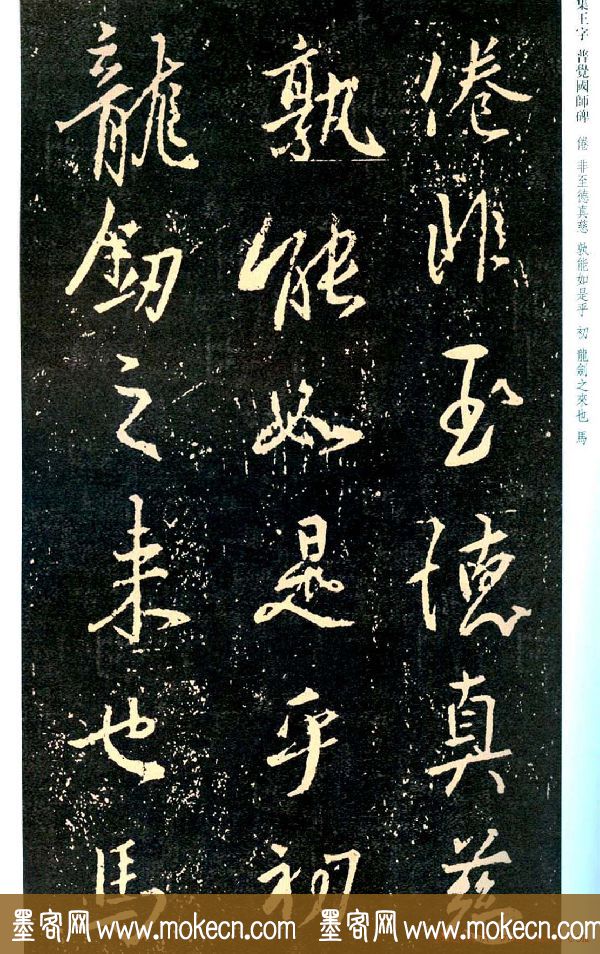 集王字 普覺國師碑 倦 非至德真慈 孰能如是乎 初 龍劍之來也 馬
倦非至德真慈
孰能如是乎初
龍劒之来也馬
墨客网 www.mokecn.com 墨客网 www.mokecn.com